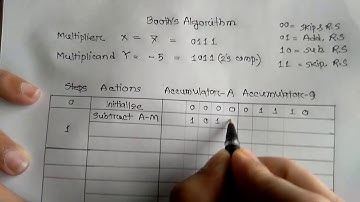 Booth's Algorithm
00 = skip & R.S
Multiplier X = 7 = 0111
01 = Add, R.S
10 = sub, R.S
Multiplicand Y = -5 = 1011 (2's comp.)
11 = skip, R.S
Steps Actions Accumulator-A Accumulator-Q
0 Initialise 0 0 0 0 0 1 1 1 0
1 Subtract A-M 1 0 1